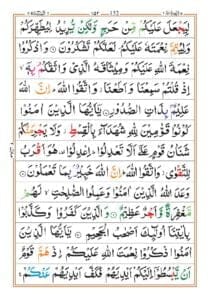 لِيَجْعَلَ عَلَيْكُمْ مِّنْ حَرَجٍ وَّلٰكِنْ يُّرِيْدُ لِيُطَهِّرَكُمْ
وَلِيُتِمَّ نِعْمَتَهٗ عَلَيْكُمْ لَعَلَّكُمْ تَشْكُرُوْنَ ۞ وَاذْكُرُوْا
نِعْمَةَ اللّٰهِ عَلَيْكُمْ وَمِيْثَاقَهُ الَّذِيْ وَاثَقَكُمْ بِهٖۤ
اِذْ قُلْتُمْ سَمِعْنَا وَاَطَعْنَا وَاتَّقُوا اللّٰهَ اِنَّ اللّٰهَ
عَلِيْمٌۢ بِذَاتِ الصُّدُوْرِ ۞ يٰۤاَيُّهَا الَّذِيْنَ اٰمَنُوْا
كُوْنُوْا قَوّٰمِيْنَ لِلّٰهِ شُهَدَآءَ بِالْقِسْطِ وَلَا يَجْرِمَنَّكُمْ
شَنَاٰنُ قَوْمٍ عَلٰۤى اَلَّا تَعْدِلُوْا اِعْدِلُوْا هُوَ اَقْرَبُ
لِلتَّقْوٰى وَاتَّقُوا اللّٰهَ اِنَّ اللّٰهَ خَبِيْرٌۢ بِمَا تَعْمَلُوْنَ ۞
وَعَدَ اللّٰهُ الَّذِيْنَ اٰمَنُوْا وَعَمِلُوا الصّٰلِحٰتِ لَهُمْ
مَّغْفِرَةٌ وَّاَجْرٌ عَظِيْمٌ ۞ وَالَّذِيْنَ كَفَرُوْا وَكَذَّبُوْا
بِاٰيٰتِنَاۤ اُولٰٓئِكَ اَصْحٰبُ الْجَحِيْمِ ۞ يٰۤاَيُّهَا الَّذِيْنَ
اٰمَنُوا اذْكُرُوْا نِعْمَتَ اللّٰهِ عَلَيْكُمْ اِذْ هَمَّ قَوْمٌ
اَنْ يَّبْسُطُوْۤا اِلَيْكُمْ اَيْدِيَهُمْ فَكَفَّ اَيْدِيَهُمْ عَنْكُمْ